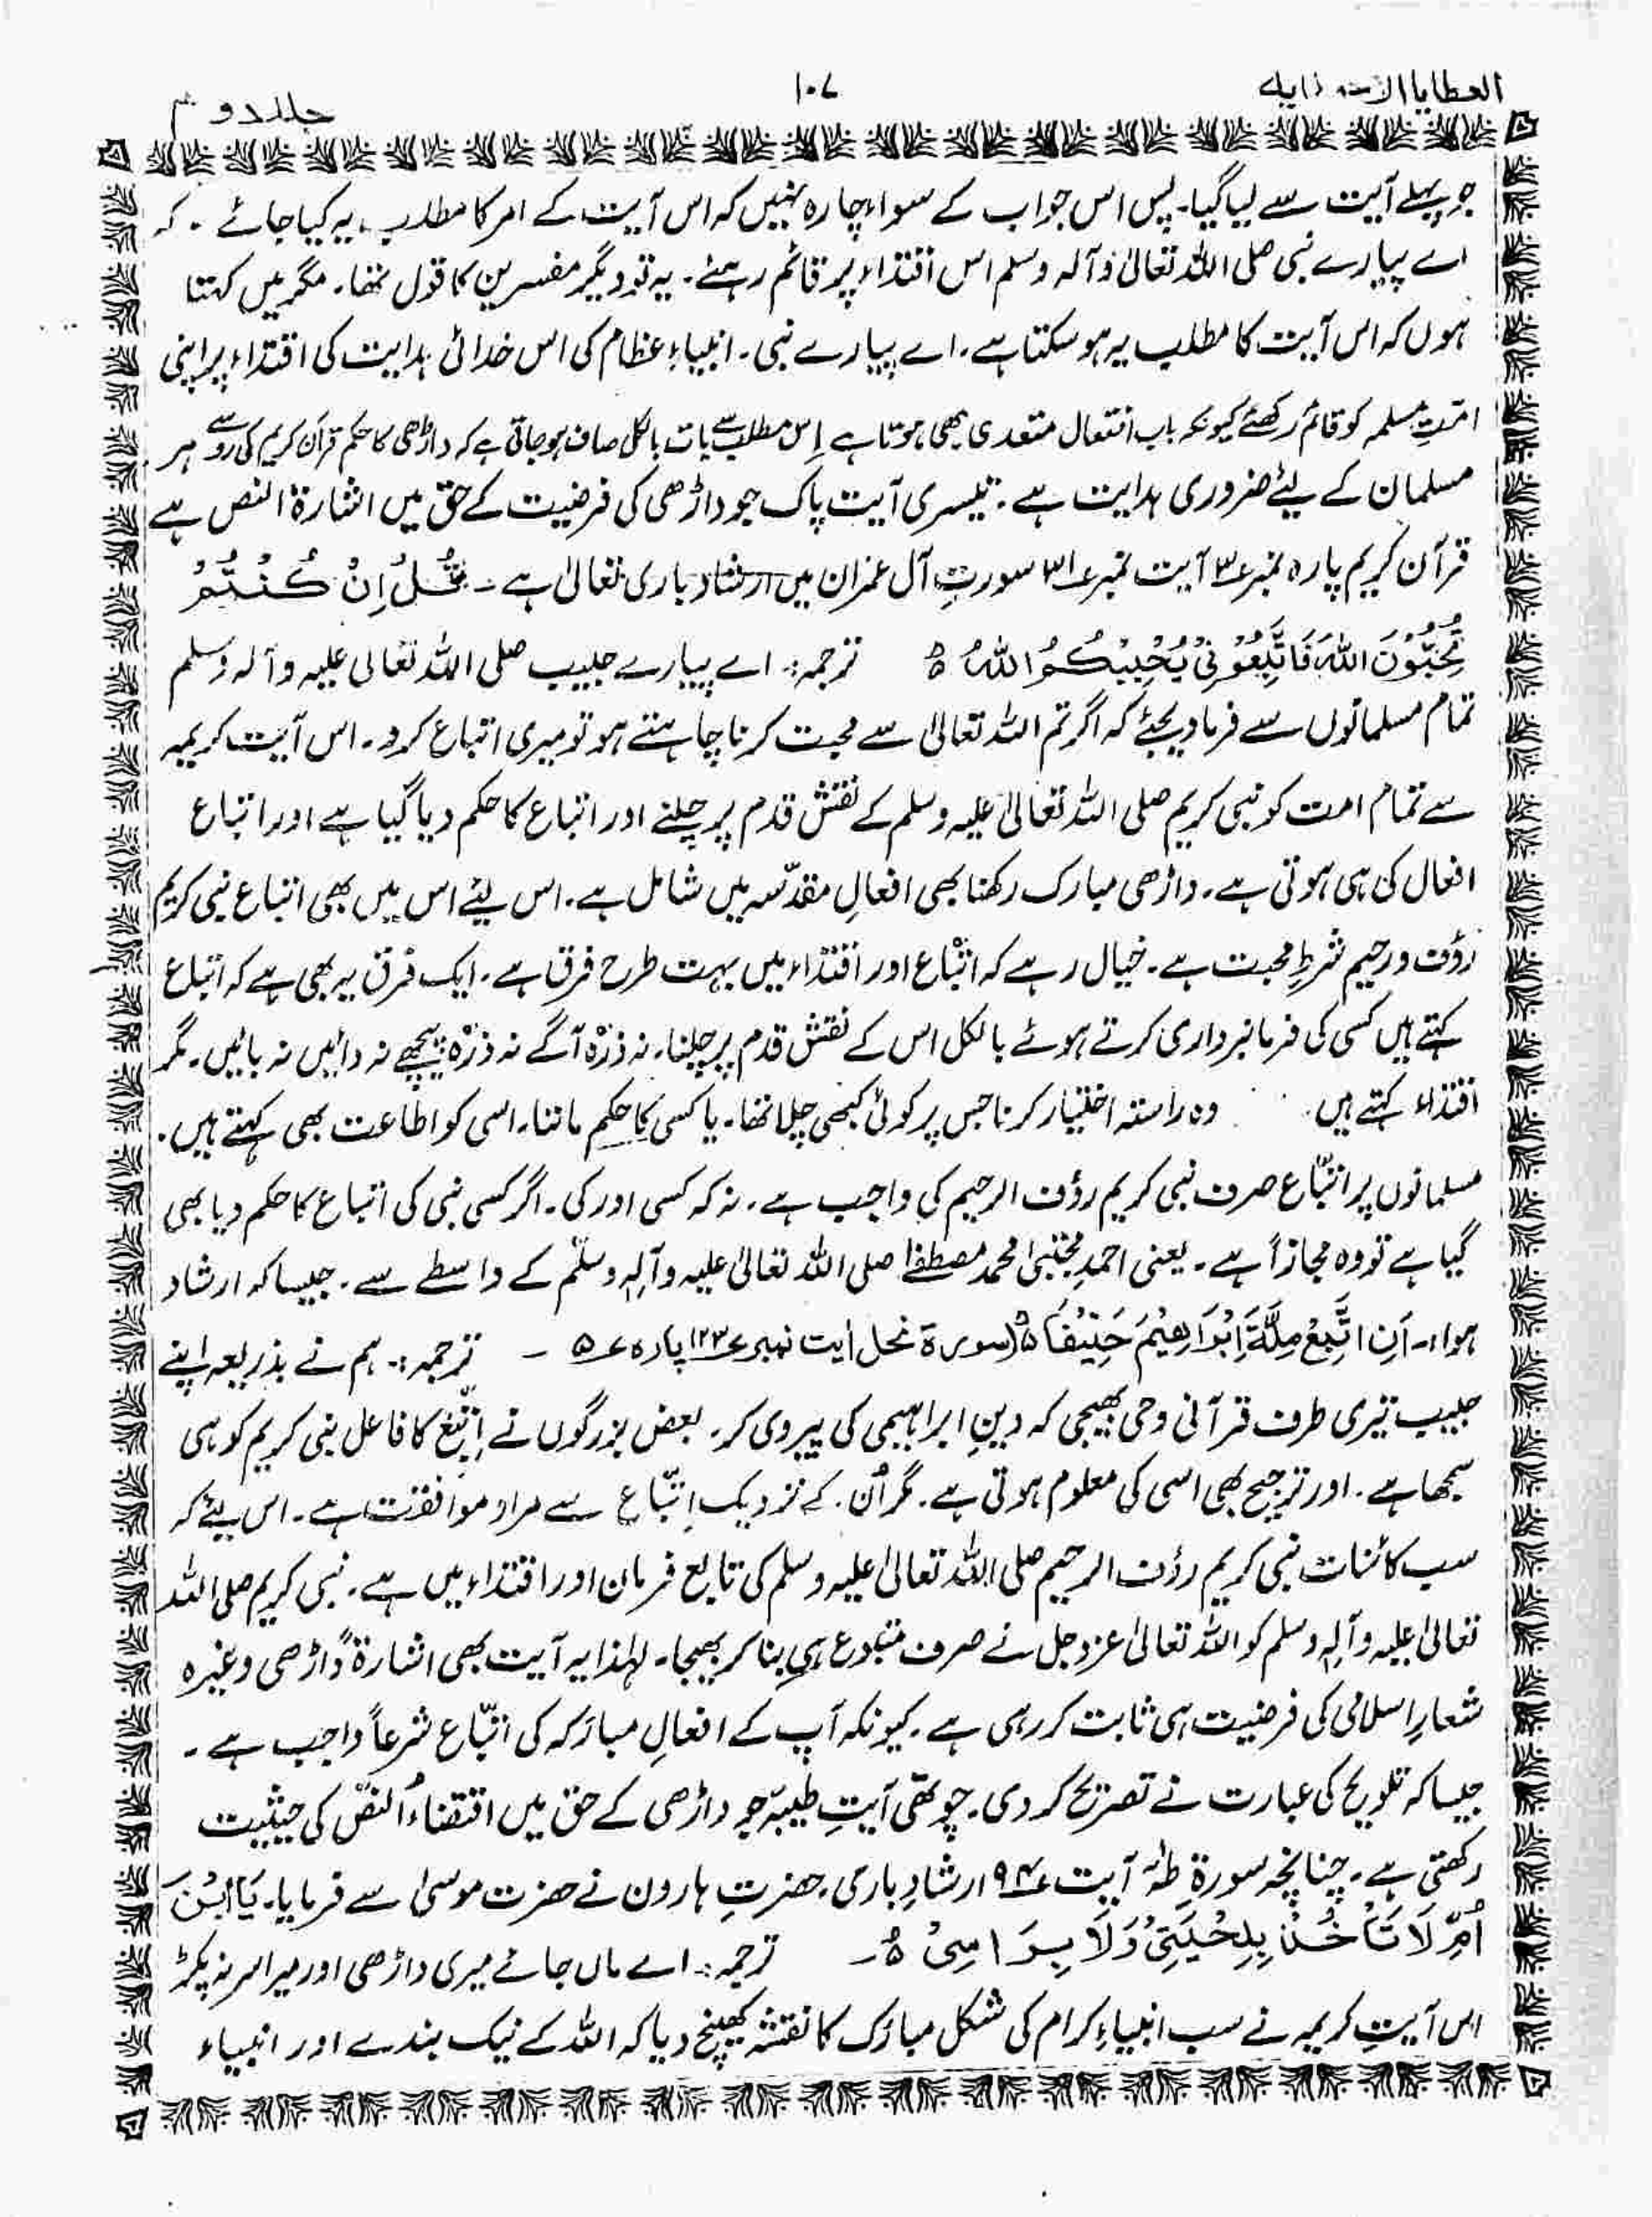 العطایا الا
۱۰۷
جلد دوم
جو پہلے آیت سے لیا گیا۔ پس اس جواب کے سواء چارہ نہیں کہ اس آیت کے امر کا مطلب یہ کیا جائے۔ کہ
اے پیارے نبی صلی اللہ تعالیٰ وآلہ وسلم اس اقتداء پر قائم رہئے۔ یہ تو دیگر مفسرین کا قول تھا۔ مگر میں کہتا
ہوں کہ اس آیت کا مطلب یہ ہو سکتا ہے۔ اے پیارے نبی۔ انبیاءِ عظام کی اس خدائی ہدایت کی اقتداء پر اپنی
امتِ مسلمہ کو قائم رکھئے کیونکہ باب افتعال متعدی بھی ہوتا ہے اِس مطلب سے بات بالکل صاف ہو جاتی ہے کہ داڑھی کا حکم قرآن کریم کی رو سے ہر
مسلمان کے لیئے ضروری ہدایت ہے۔ تیسری آیت پاک جو داڑھی کی فرضیت کے حق میں اشارۃ النص ہے
قرآن کریم پارہ نمبر ۳ آیت نمبر ۳۱ سورتِ آل عمران میں ارشاد باری تعالیٰ ہے۔ قُلْ اِنْ كُنْتُمْ
تُحِبُّوْنَ اللهَ فَاتَّبِعُوْنِیْ یُحْبِبْكُمُ اللهُ ہ ترجمہ:۔ اے پیارے حبیب صلی اللہ تعالیٰ علیہ وآلہ وسلم
تمام مسلمانوں سے فرما دیجئے کہ اگر تم اللہ تعالیٰ سے محبت کرنا چاہتے ہو تو میری اتباع کرو۔ اس آیت کریمہ
سے تمام امت کو نبی کریم صلی اللہ تعالیٰ علیہ وسلم کے نقش قدم پر چلنے اور اتباع کا حکم دیا گیا ہے اور اتباع
افعال کی ہی ہوتی ہے۔ داڑھی مبارک رکھنا بھی افعالِ مقدّسہ میں شامل ہے۔ اس لیئے اس میں بھی اتباع نبی کریم
رؤف و رحیم شرطِ محبت ہے۔ خیال رہے کہ اتّباع اور اقتداء میں بہت طرح فرق ہے۔ ایک فرق یہ بھی ہے کہ اتباع
کہتے ہیں کسی کی فرمانبرداری کرتے ہوئے بالکل اس کے نقش قدم پر چلنا۔ نہ ذرّہ آگے نہ ذرّہ پیچھے نہ دائیں نہ بائیں۔ مگر
اقتداء کہتے ہیں۔ وہ راستہ اختیار کرنا جس پر کوئی کبھی چلا تھا۔ یا کسی کا حکم ماننا۔ اسی کو اطاعت بھی کہتے ہیں۔
مسلمانوں پر اتّباع صرف نبی کریم رؤف الرحیم کی واجب ہے۔ نہ کہ کسی اور کی۔ اگر کسی نبی کی اتباع کا حکم دیا بھی
گیا ہے تو وہ مجازاً ہے۔ یعنی احمدِ مجتبیٰ محمد مصطفےٰ صلی اللہ تعالیٰ علیہ وآلہٖ وسلّم کے واسطے سے۔ جیسا کہ ارشاد
ہوا:۔ اَنِ اتَّبِعْ مِلَّةَ اِبْرَاهِیْمَ حَنِیْفًا ہ (سورۃ نحل آیت نمبر ۱۲۳ پارہ ۵ ۔ ترجمہ:۔ ہم نے بذریعہ اپنے
حبیب تیری طرف قرآنی وحی بھیجی کہ دینِ ابراہیمی کی پیروی کر۔ بعض بزرگوں نے اِتَّبِعْ کا فاعل نبی کریم کو ہی
سمجھا ہے۔ اور ترجیح بھی اسی کی معلوم ہوتی ہے۔ مگر اُن کے نزدیک اِتّباع سے مراد موافقت ہے۔ اس لیئے کہ
سب کائنات نبی کریم رؤف الرحیم صلی اللہ تعالیٰ علیہ وسلم کی تابع فرمان اور اقتداء میں ہے۔ نبی کریم صلی اللہ
تعالیٰ علیہ وآلہٖ وسلم کو اللہ تعالیٰ عزوجل نے صرف متبوع ہی بنا کر بھیجا۔ لہٰذا یہ آیت بھی اشارۃً داڑھی وغیرہ
شعارِ اسلامی کی فرضیت ہی ثابت کر رہی ہے۔ کیونکہ آپ کے افعالِ مبارکہ کی اتّباع شرعاً واجب ہے۔
جیسا کہ تلویح کی عبارت نے تصریح کر دی۔ چوتھی آیتِ طیبّہ جو داڑھی کے حق میں اقتضاءُ النصّ کی حیثیت
رکھتی ہے۔ چنانچہ سورۃ طٰہٰ آیت ۹۴ ارشادِ باری۔ حضرتِ ہارون نے حضرت موسیٰ سے فرمایا۔ یَا ابْنَ
اُمَّ لَا تَأْخُذْ بِلِحْیَتِیْ وَلَا بِرَاسِیْ ہ۔ ترجمہ:۔ اے ماں جائے میری داڑھی اور میرا سر نہ پکڑ
اس آیتِ کریمہ نے سب انبیاءِ کرام کی شکل مبارک کا نقشہ کھینچ دیا کہ اللہ کے نیک بندے اور انبیاء